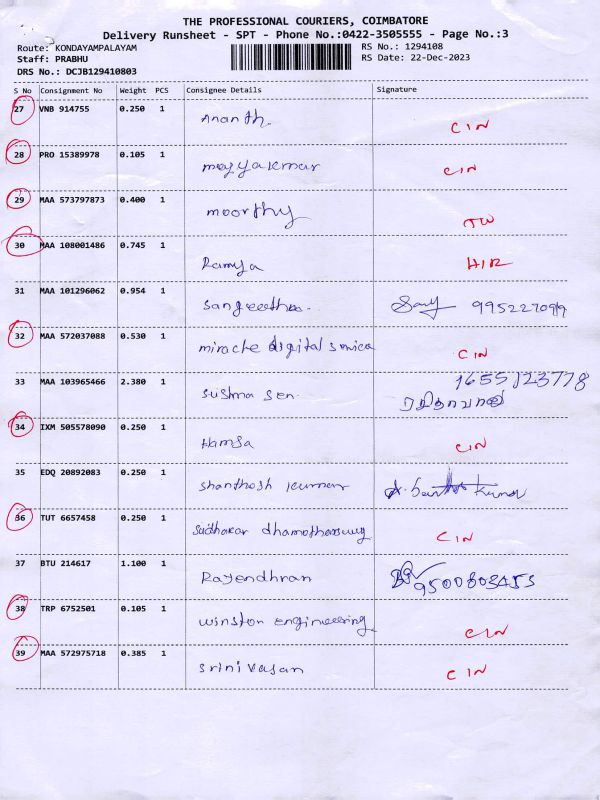 THE PROFESSIONAL COURIERS, COIMBATORE
Delivery Runsheet - SPT - Phone No.:0422-3505555 - Page No.:3
Route: KONDAYAMPALAYAM RS No.: 1294108
Staff: PRABHU RS Date: 22-Dec-2023
DRS No.: DCJB129410803
S No Consignment No Weight PCS Consignee Details Signature
27 VNB 914755 0.250 1 Ananth. CIN
28 PRO 15389978 0.105 1 CIN
29 MAA 573797873 0.400 1 moorthy
30 MAA 108001486 0.745 1 Ramya
31 MAA 101296062 0.954 1 Sangeetha
32 MAA 572037088 0.530 1 miracle digital service CIN
33 MAA 103965466 2.380 1 Sushma Sen.
34 IXM 505578090 0.250 1 Hamsa CIN
35 EDQ 20892083 0.250 1 Shanthosh kumar
36 TUT 6657458 0.250 1 CIN
37 BTU 214617 1.100 1 Rajendhran 9500803453
38 TRP 6752501 0.105 1 winston engineering CIN
39 MAA 572975718 0.385 1 srinivasan CIN